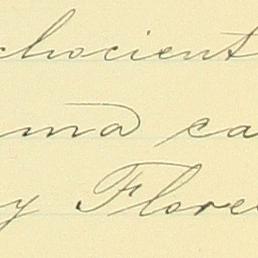 chocient
ma ca
y Flore